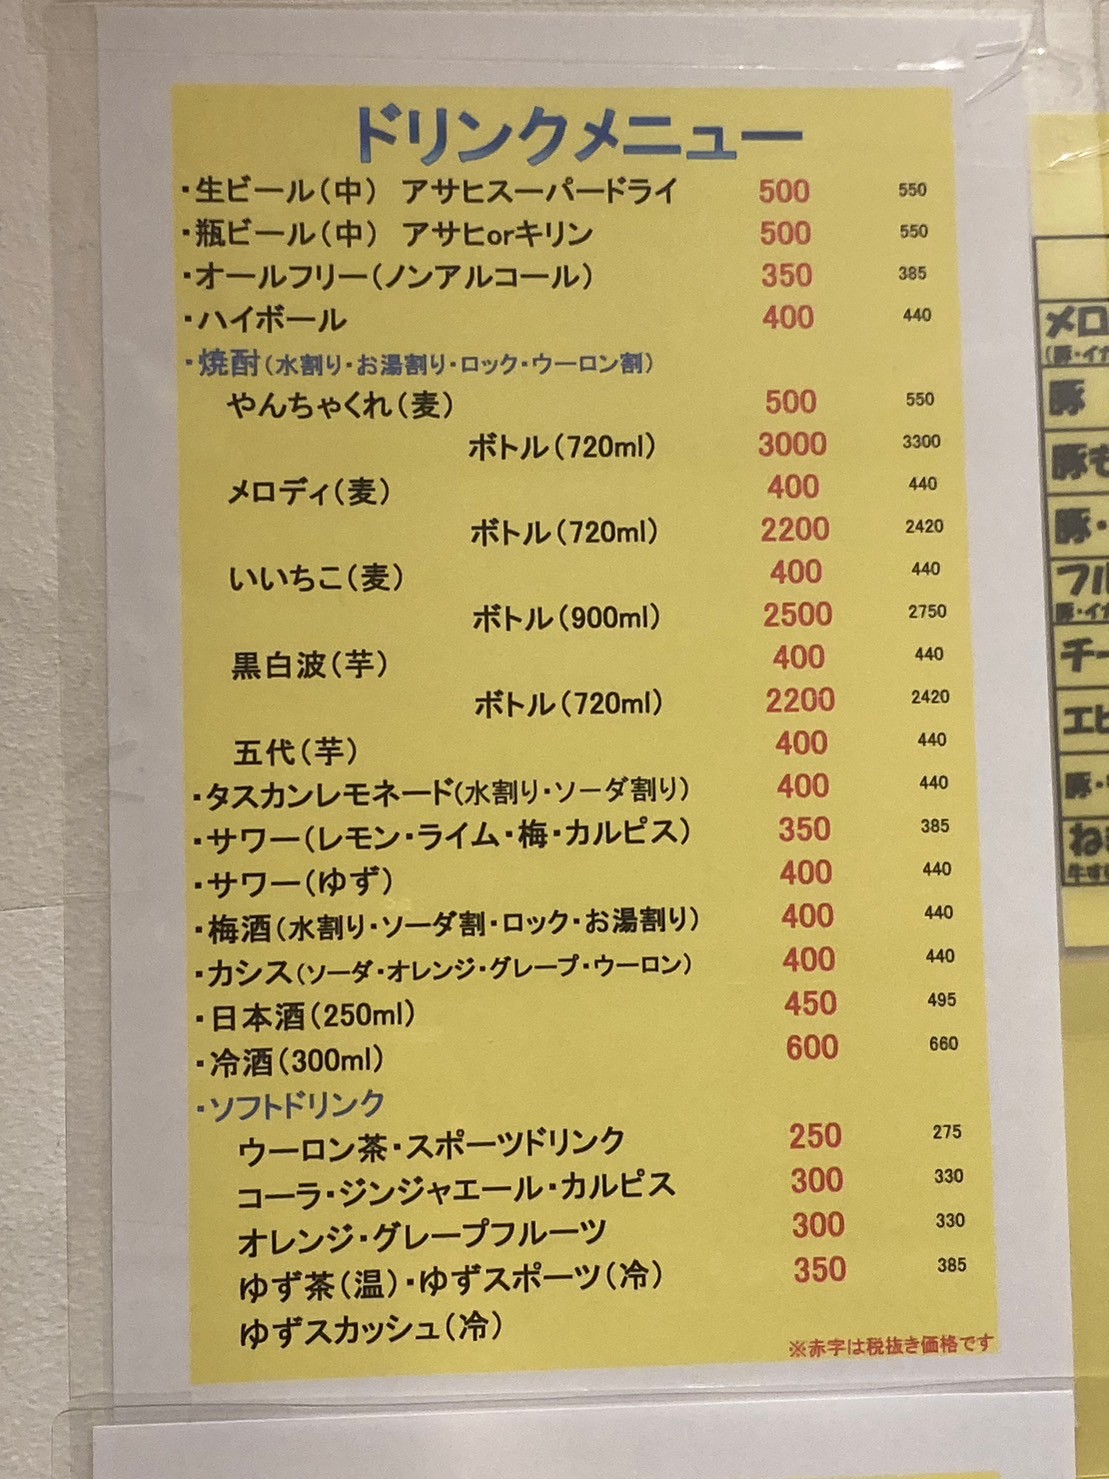 ドリンクメニュー
・生ビール(中) アサヒスーパードライ 500 550
・瓶ビール(中) アサヒorキリン 500 550
・オールフリー(ノンアルコール) 350 385
・ハイボール 400 440
・焼酎(水割り・お湯割り・ロック・ウーロン割)
やんちゃくれ(麦) 500 550
ボトル(720ml) 3000 3300
メロディ(麦) 400 440
ボトル(720ml) 2200 2420
いいちこ(麦) 400 440
ボトル(900ml) 2500 2750
黒白波(芋) 400 440
ボトル(720ml) 2200 2420
五代(芋) 400 440
・タスカンレモネード(水割り・ソーダ割り) 400 440
・サワー(レモン・ライム・梅・カルピス) 350 385
・サワー(ゆず) 400 440
・梅酒(水割り・ソーダ割・ロック・お湯割り) 400 440
・カシス(ソーダ・オレンジ・グレープ・ウーロン) 400 440
・日本酒(250ml) 450 495
・冷酒(300ml) 600 660
・ソフトドリンク
ウーロン茶・スポーツドリンク 250 275
コーラ・ジンジャエール・カルピス 300 330
オレンジ・グレープフルーツ 300 330
ゆず茶(温)・ゆずスポーツ(冷) 350 385
ゆずスカッシュ(冷)
※赤字は税抜き価格です
メロ
(豚・イカ
豚
豚も
豚・
フル
豚・イカ
チー
エビ
豚・
ねぎ
牛す